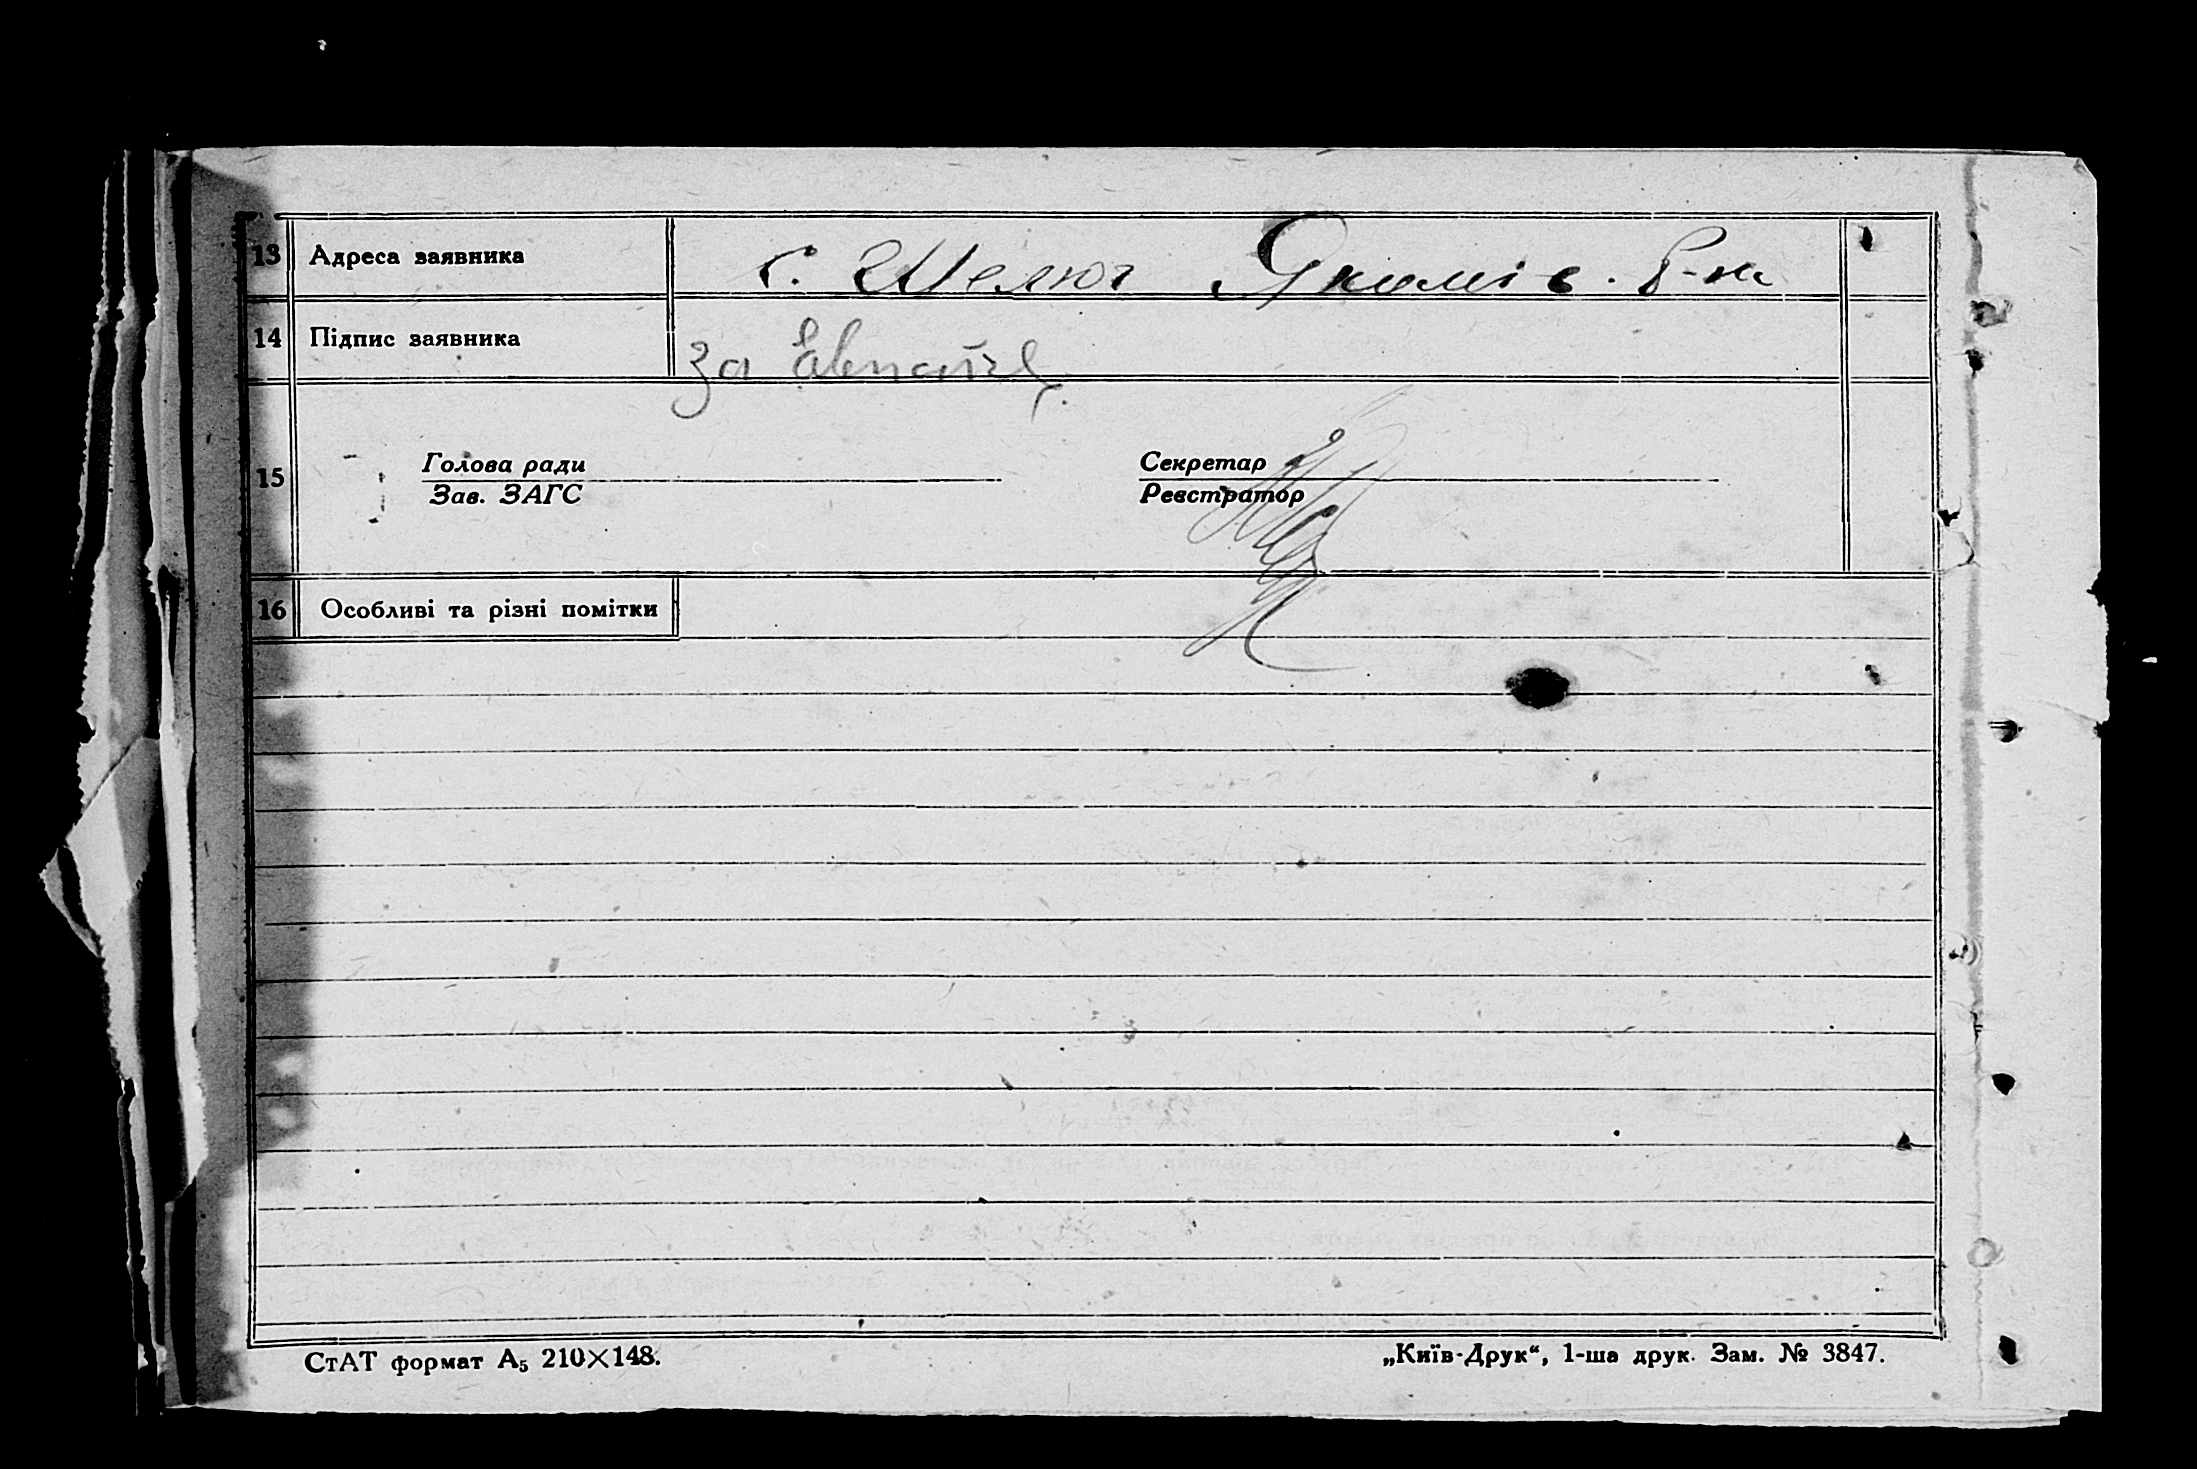 13 Адреса заявника с. Шелюг Якимів. р-н
14 Підпис заявника за
15 Голова ради Секретар
Зав. ЗАГС Реєстратор
16 Особливі та різні помітки
СтАТ формат А₅ 210×148. „Київ-Друк“, 1-ша друк. Зам. № 3847.